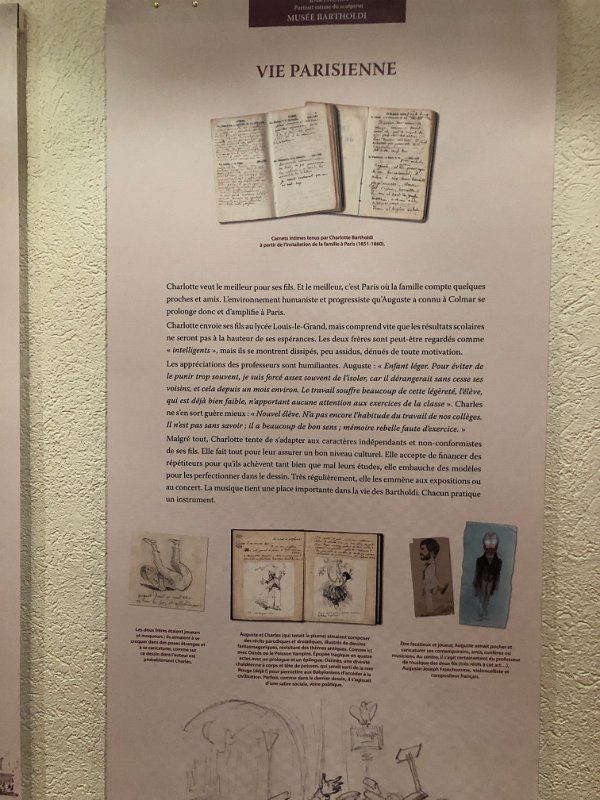 Portrait intime du sculpteur
MUSÉE BARTHOLDI
VIE PARISIENNE
Carnets intimes tenus par Charlotte Bartholdi
à partir de l'installation de la famille à Paris (1851-1860).
Charlotte veut le meilleur pour ses fils. Et le meilleur, c'est Paris où la famille compte quelques
proches et amis. L'environnement humaniste et progressiste qu'Auguste a connu à Colmar se
prolonge donc et d'amplifie à Paris.
Charlotte envoie ses fils au lycée Louis-le-Grand, mais comprend vite que les résultats scolaires
ne seront pas à la hauteur de ses espérances. Les deux frères sont peut-être regardés comme
« intelligents », mais ils se montrent dissipés, peu assidus, dénués de toute motivation.
Les appréciations des professeurs sont humiliantes. Auguste : « Enfant léger. Pour éviter de
le punir trop souvent, je suis forcé assez souvent de l'isoler, car il dérangerait sans cesse ses
voisins, et cela depuis un mois environ. Le travail souffre beaucoup de cette légèreté, l'élève,
qui est déjà bien faible, n'apportant aucune attention aux exercices de la classe ». Charles
ne s'en sort guère mieux : « Nouvel élève. N'a pas encore l'habitude du travail de nos collèges.
Il n'est pas sans savoir ; il a beaucoup de bon sens ; mémoire rebelle faute d'exercice. »
Malgré tout, Charlotte tente de s'adapter aux caractères indépendants et non-conformistes
de ses fils. Elle fait tout pour leur assurer un bon niveau culturel. Elle accepte de financer des
répétiteurs pour qu'ils achèvent tant bien que mal leurs études, elle embauche des modèles
pour les perfectionner dans le dessin. Très régulièrement, elle les emmène aux expositions ou
au concert. La musique tient une place importante dans la vie des Bartholdi. Chacun pratique
un instrument.
Les deux frères étaient joueurs
et moqueurs : ils aimaient à se
croquer dans des poses étranges et
à se caricaturer, comme sur
ce dessin dont l'auteur est
probablement Charles.
Auguste et Charles (qui tenait la plume) aimaient composer
des récits parodiques et drolatiques, illustrés de dessins
fantasmagoriques, revisitant des thèmes antiques. Comme ici
avec Oanès ou le Poisson Vampire. Épopée tragique en quatre
actes avec un prologue et un épilogue. Oannès, une divinité
chaldéenne à corps et tête de poisson, qui serait sorti de la mer
Rouge (déjà !) pour permettre aux Babyloniens d'accéder à la
civilisation. Parfois, comme dans le dernier dessin, il s'agissait
d'une satire sociale, voire politique.
Être facétieux et joueur, Auguste aimait pocher et
caricaturer ses contemporains, amis, confrères ou
musiciens. Au centre, il s'agit certainement du professeur
de musique des deux fils
Auguste-Joseph Franchomme, violoncelliste et
compositeur français.